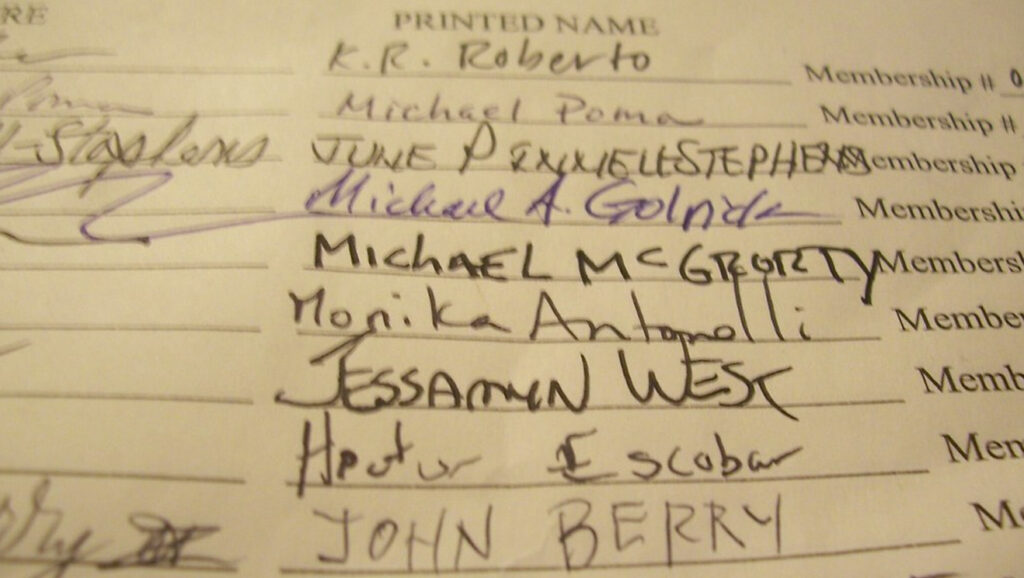 RE PRINTED NAME
K.R. Roberto Membership # 0
Poma Michael Poma Membership #
Stephens JUNE PINNELL-STEPHENS Membership
Michael A. Golrick Membershi
MICHAEL McGRORTY Members
Monika Antonelli Member
JESSAMYN WEST Memb
Hector Escobar Mem
JOHN BERRY M